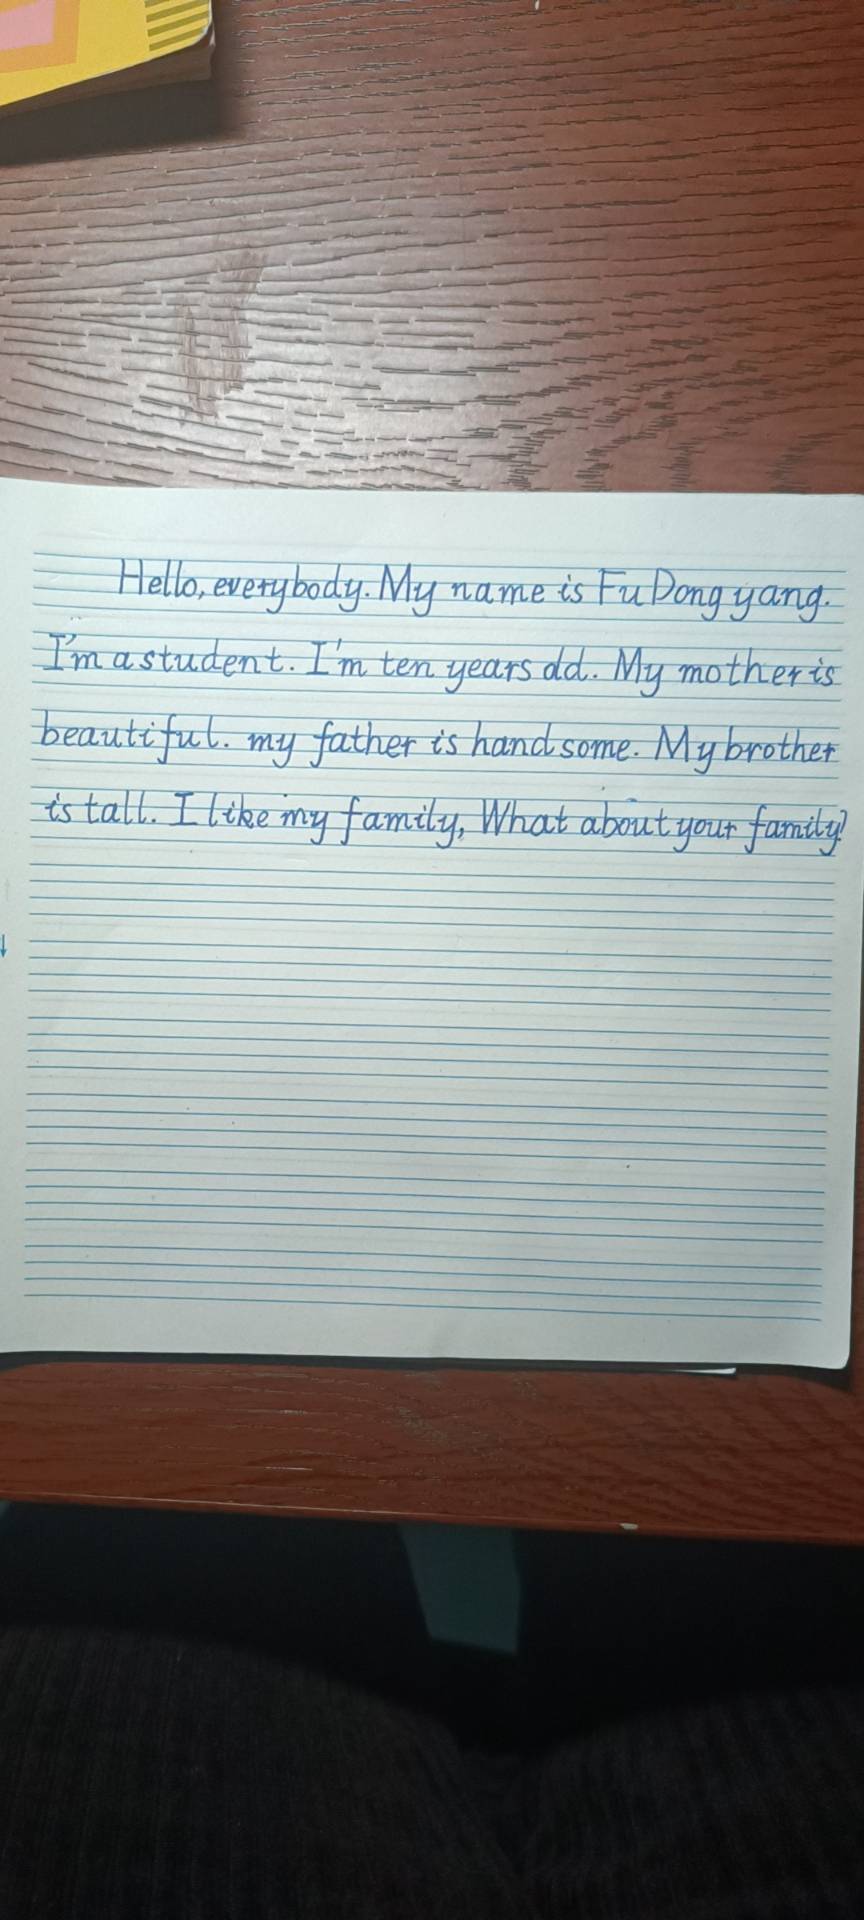 Hello, everybody. My name is Fu Dong yang.
I'm a student. I'm ten years old. My mother is
beautiful. my father is handsome. My brother
is tall. I like my family, What about your family?